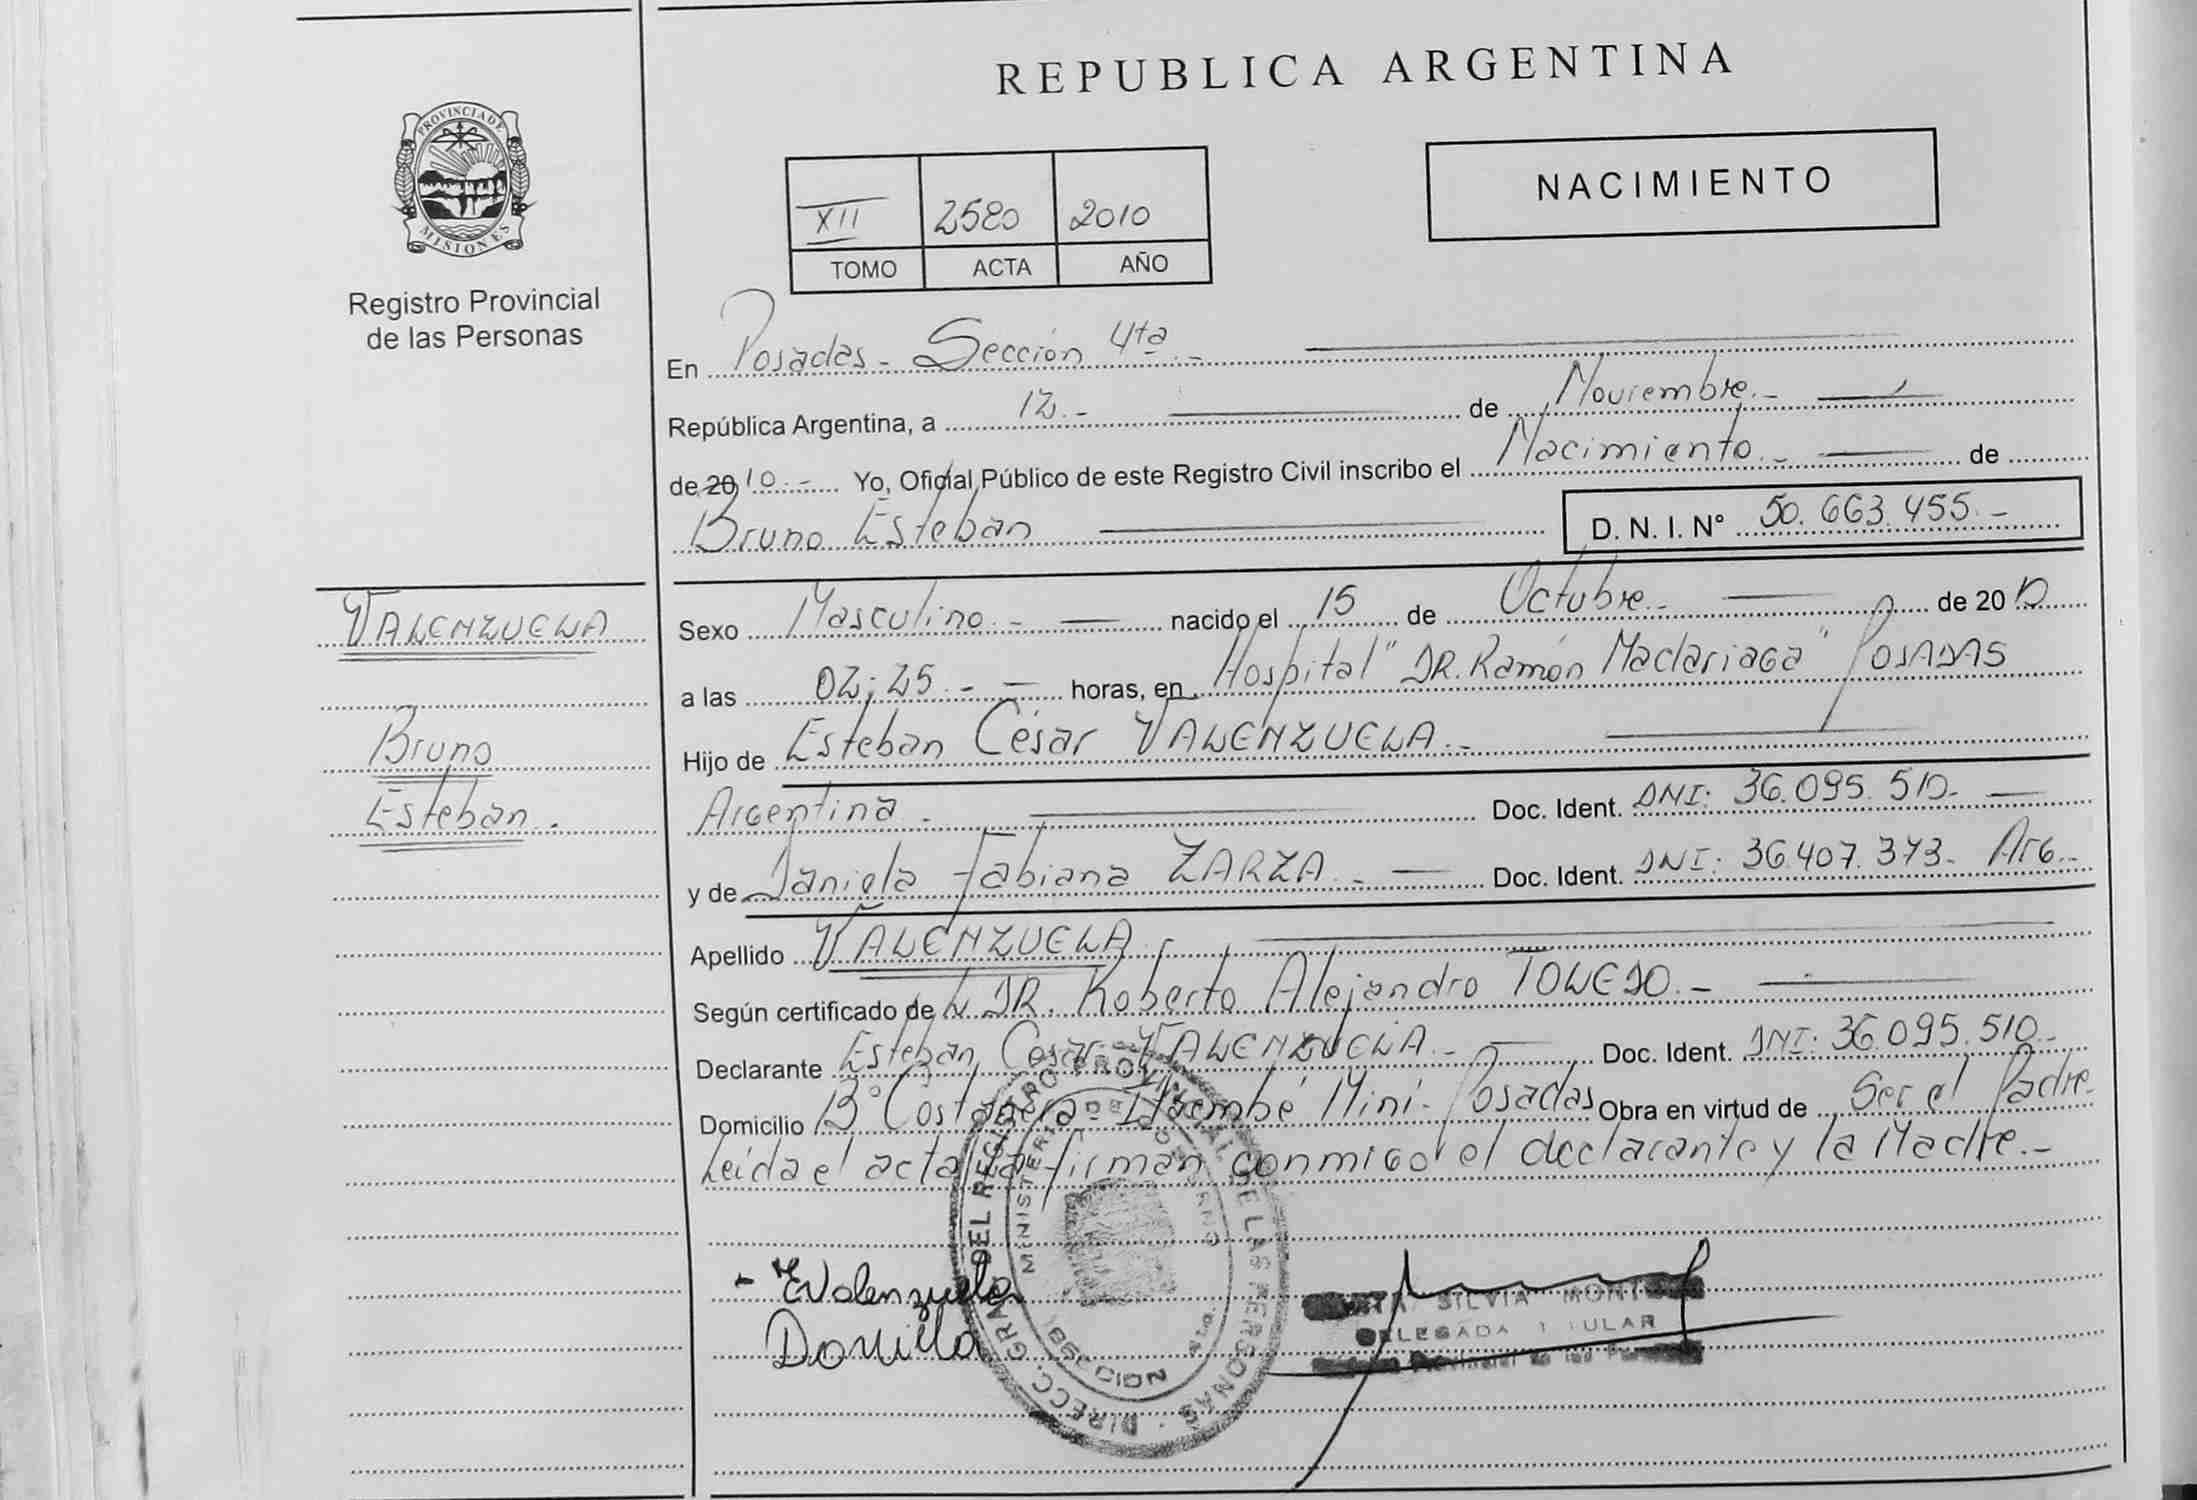 REPUBLICA ARGENTINA
PROVINCIA DE
MISIONES
Registro Provincial
de las Personas
NACIMIENTO
XII 2580 2010
TOMO ACTA AÑO
En Posadas - Sección 4ta.-
República Argentina, a 12.- de Noviembre.-
de 2010.- Yo, Oficial Público de este Registro Civil inscribo el Nacimiento.- de
Bruno Esteban D. N. I. N° 50.663.455.-
VALENZUELA
Bruno
Esteban.
Sexo Masculino.- nacido el 15 de Octubre.- de 2010
a las 02:25.- horas, en Hospital "DR. Ramón Madariaga" POSADAS
Hijo de Esteban César VALENZUELA.-
Argentina.- Doc. Ident. DNI: 36.095.510.-
y de Daniela Fabiana ZARZA.- Doc. Ident. DNI: 36.407.373- Arg.-
Apellido VALENZUELA
Según certificado de DR. Roberto Alejandro TOLEDO.-
Declarante Esteban Cesar VALENZUELA.- Doc. Ident. DNI: 36.095.510.-
Domicilio B° Costanera - Itaembé Miní - Posadas Obra en virtud de Ser el Padre.-
Leida el acta la firman conmigo el declarante y la Madre.-
DIRECC. GRAL. DEL REGISTRO PROVINCIAL DE LAS PERSONAS
MINISTERIO DE GOBIERNO
4ta.
EValenzuela
SILVIA
DELEGADA TITULAR
Provincial de las